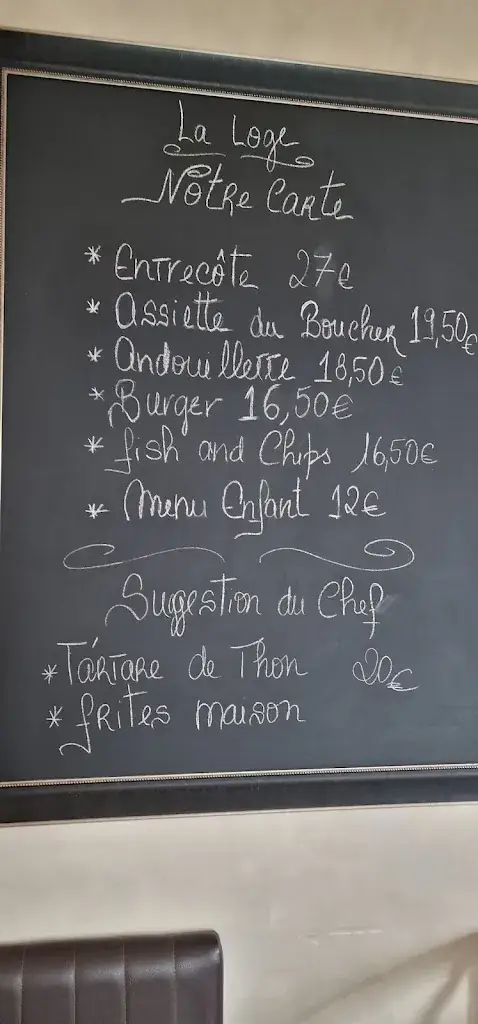 La Loge
Notre Carte
* Entrecôte 27€
* Assiette du Boucher 19,50€
* Andouillette 18,50€
* Burger 16,50€
* fish and Chips 16,50€
* Menu Enfant 12€
Suggestion du Chef
* Tártare de Thon 20€
* frites maison